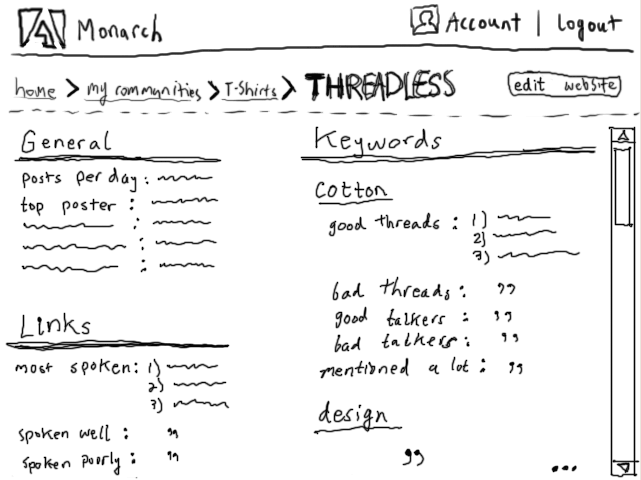 Monarch
Account | logout
home > my communities > T-Shirts > THREADLESS
edit website
General
posts per day :
top poster :
Links
most spoken: 1)
2)
3)
spoken well : "
spoken poorly : "
Keywords
cotton
good threads : 1)
2)
3)
bad threads : "
good talkers : "
bad talkers : "
mentioned a lot : "
design
"
...